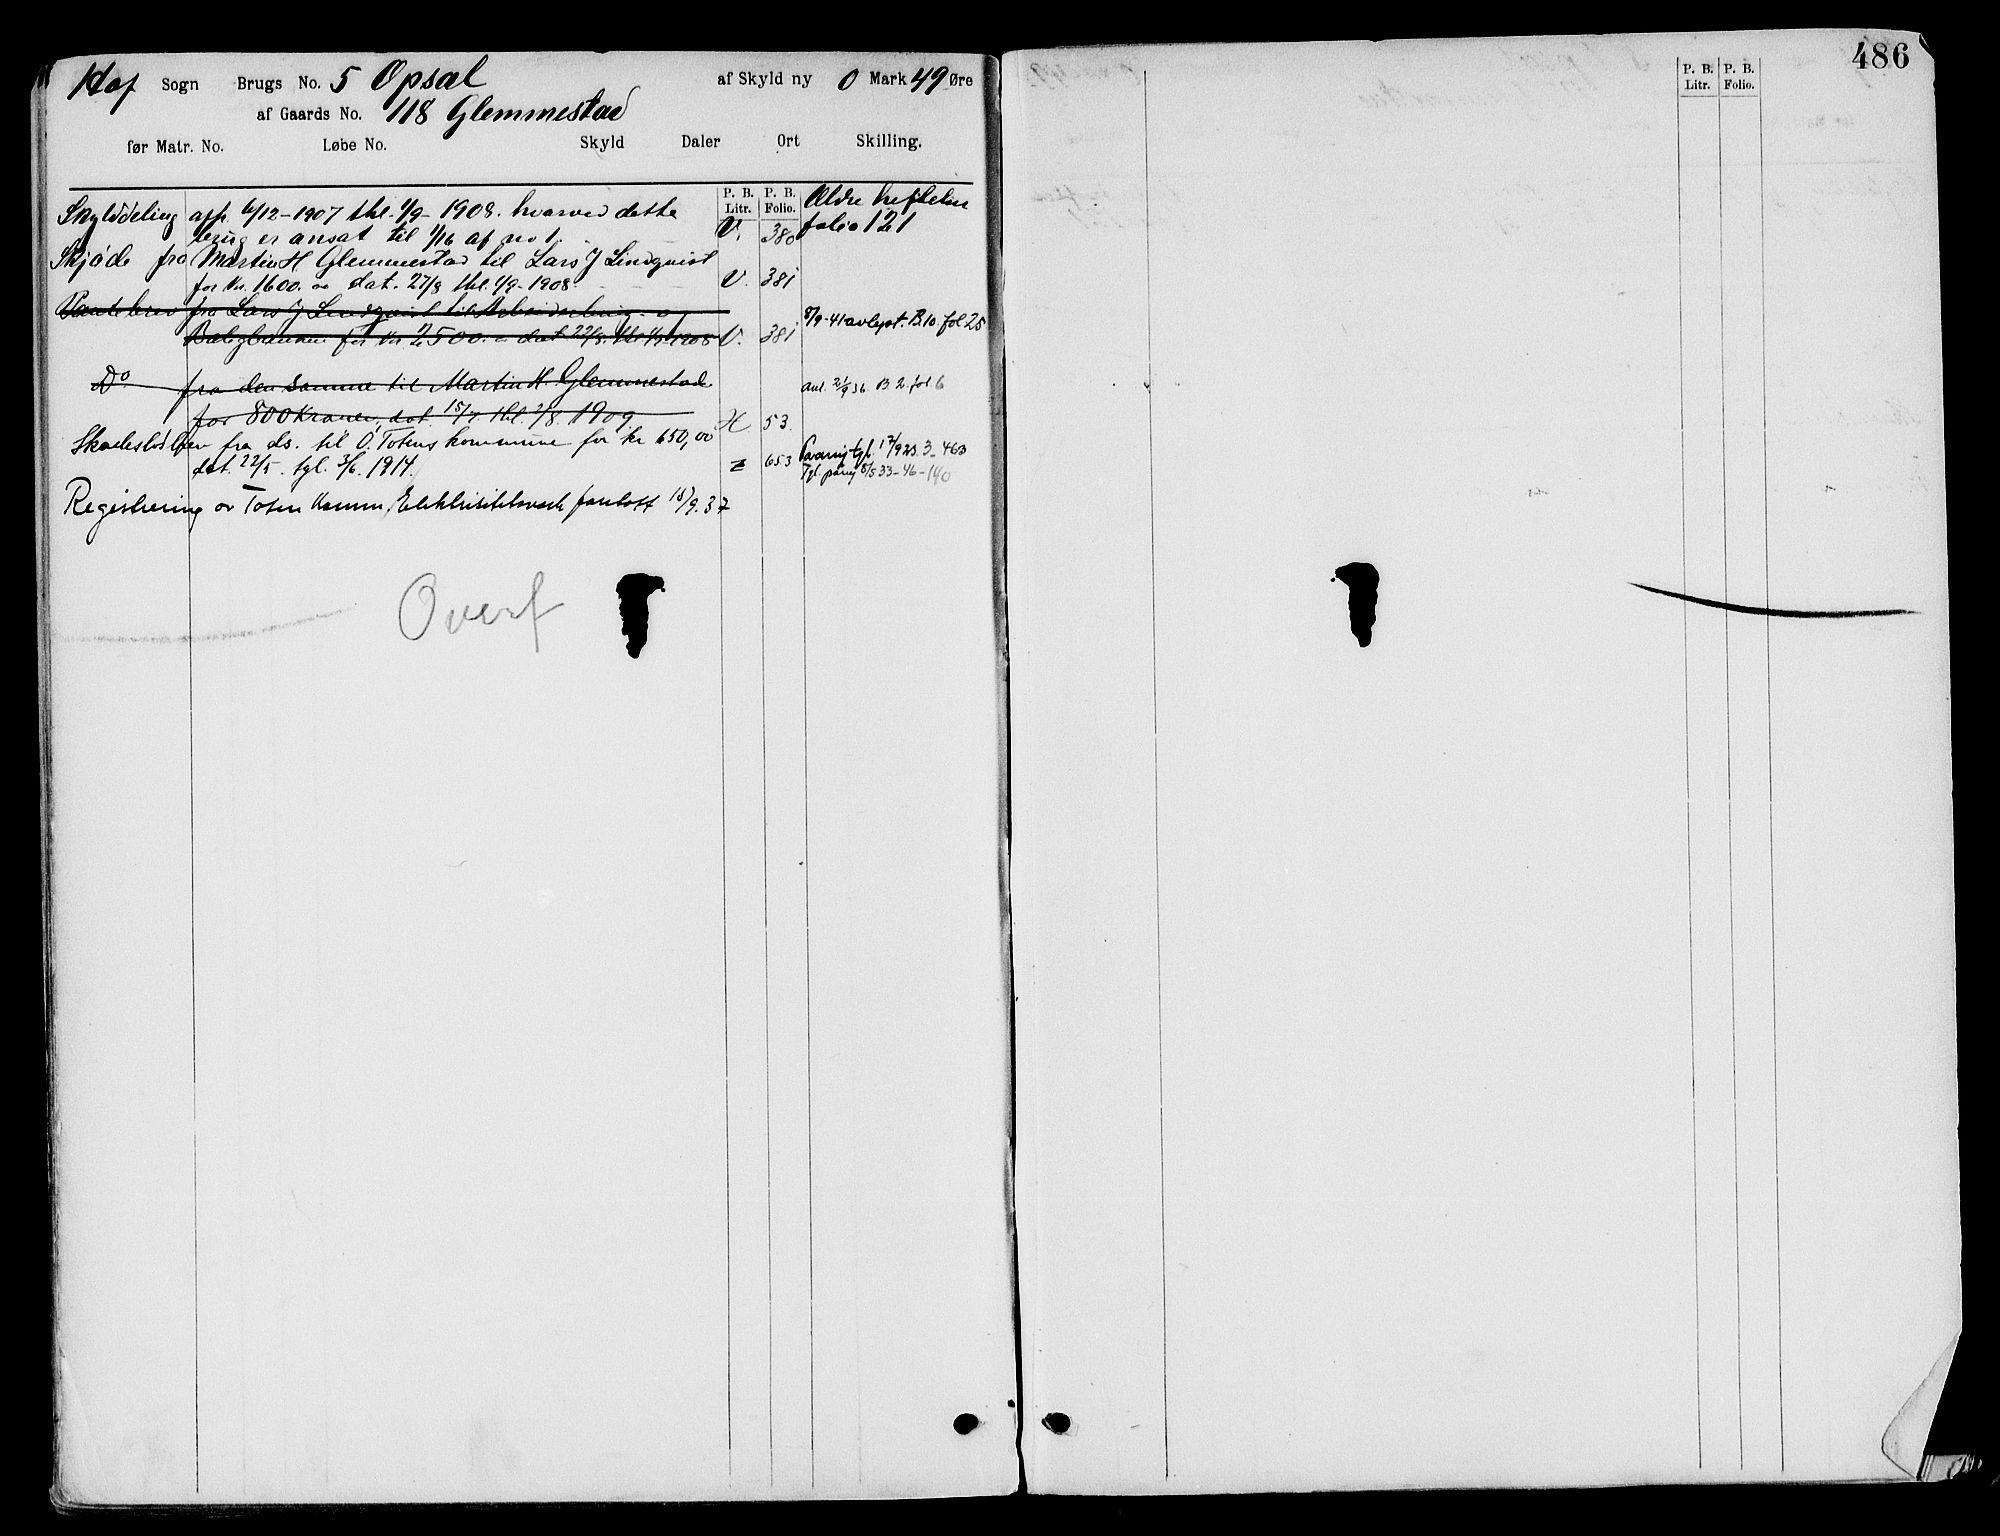 Hof Sogn Brugs No. 5 Opsal af Skyld ny 0 Mark 49 Øre
af Gaards No. 118 Glemmestad
før Matr. No. Løbe No. Skyld Daler Ort Skilling.
P. B. Litr. P. B. Folio.
Skylddeling afh. 6/12-1907 thl. 1/9-1908. hvorved dette Ældre heftelser
brug er ansat til 1/16 af no 1. V. 380 folio 121
Skjøde fra Martin H Glemmestad til Lars J Lindquist
for Kr. 1600.00 dat. 27/8 thl. 1/9-1908. V. 381
Pantebrev fra Lars J Lindquist til Arbeiderbrug- o
Boligbanken for Kr 2500. dat 22/8. thl 1/9 1908 V. 381 8/9-41 avlyst. B.10. fol 25
Do fra den samme til Martin H. Glemmestad avl. 21/9 36 B 2. fol 6
for 800 Kroner, dat. 15/7. thl. 2/8. 1909 H. 53.
Skadesløsbrev fra ds. til Ø. Totens kommune for kr 650,00
dat. 22/5. tgl. 3/6. 1914. z 653 tgl. 12/9 23. 3-463
Tgl. 8/5 33-46-140
Registrering av Toten Komm. Elektrisitetsverk foretatt 18/9.37
Overf
486
P. B. Litr. P. B. Folio.